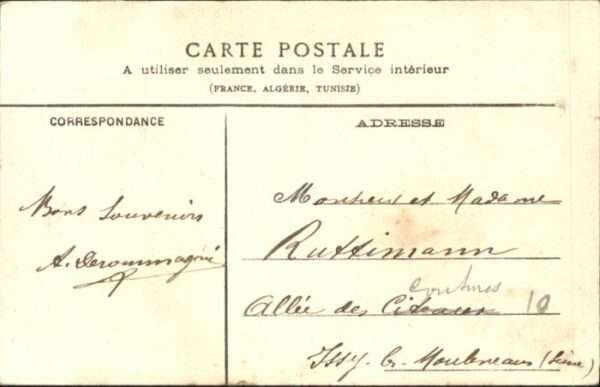 CARTE POSTALE
A utiliser seulement dans le Service intérieur
(FRANCE, ALGÉRIE, TUNISIE)
CORRESPONDANCE
ADRESSE
Bons Souvenirs
A.
Monsieur et Madame
Ruttimann
Allée des 10
Issy-les-Moulineaux (Seine)